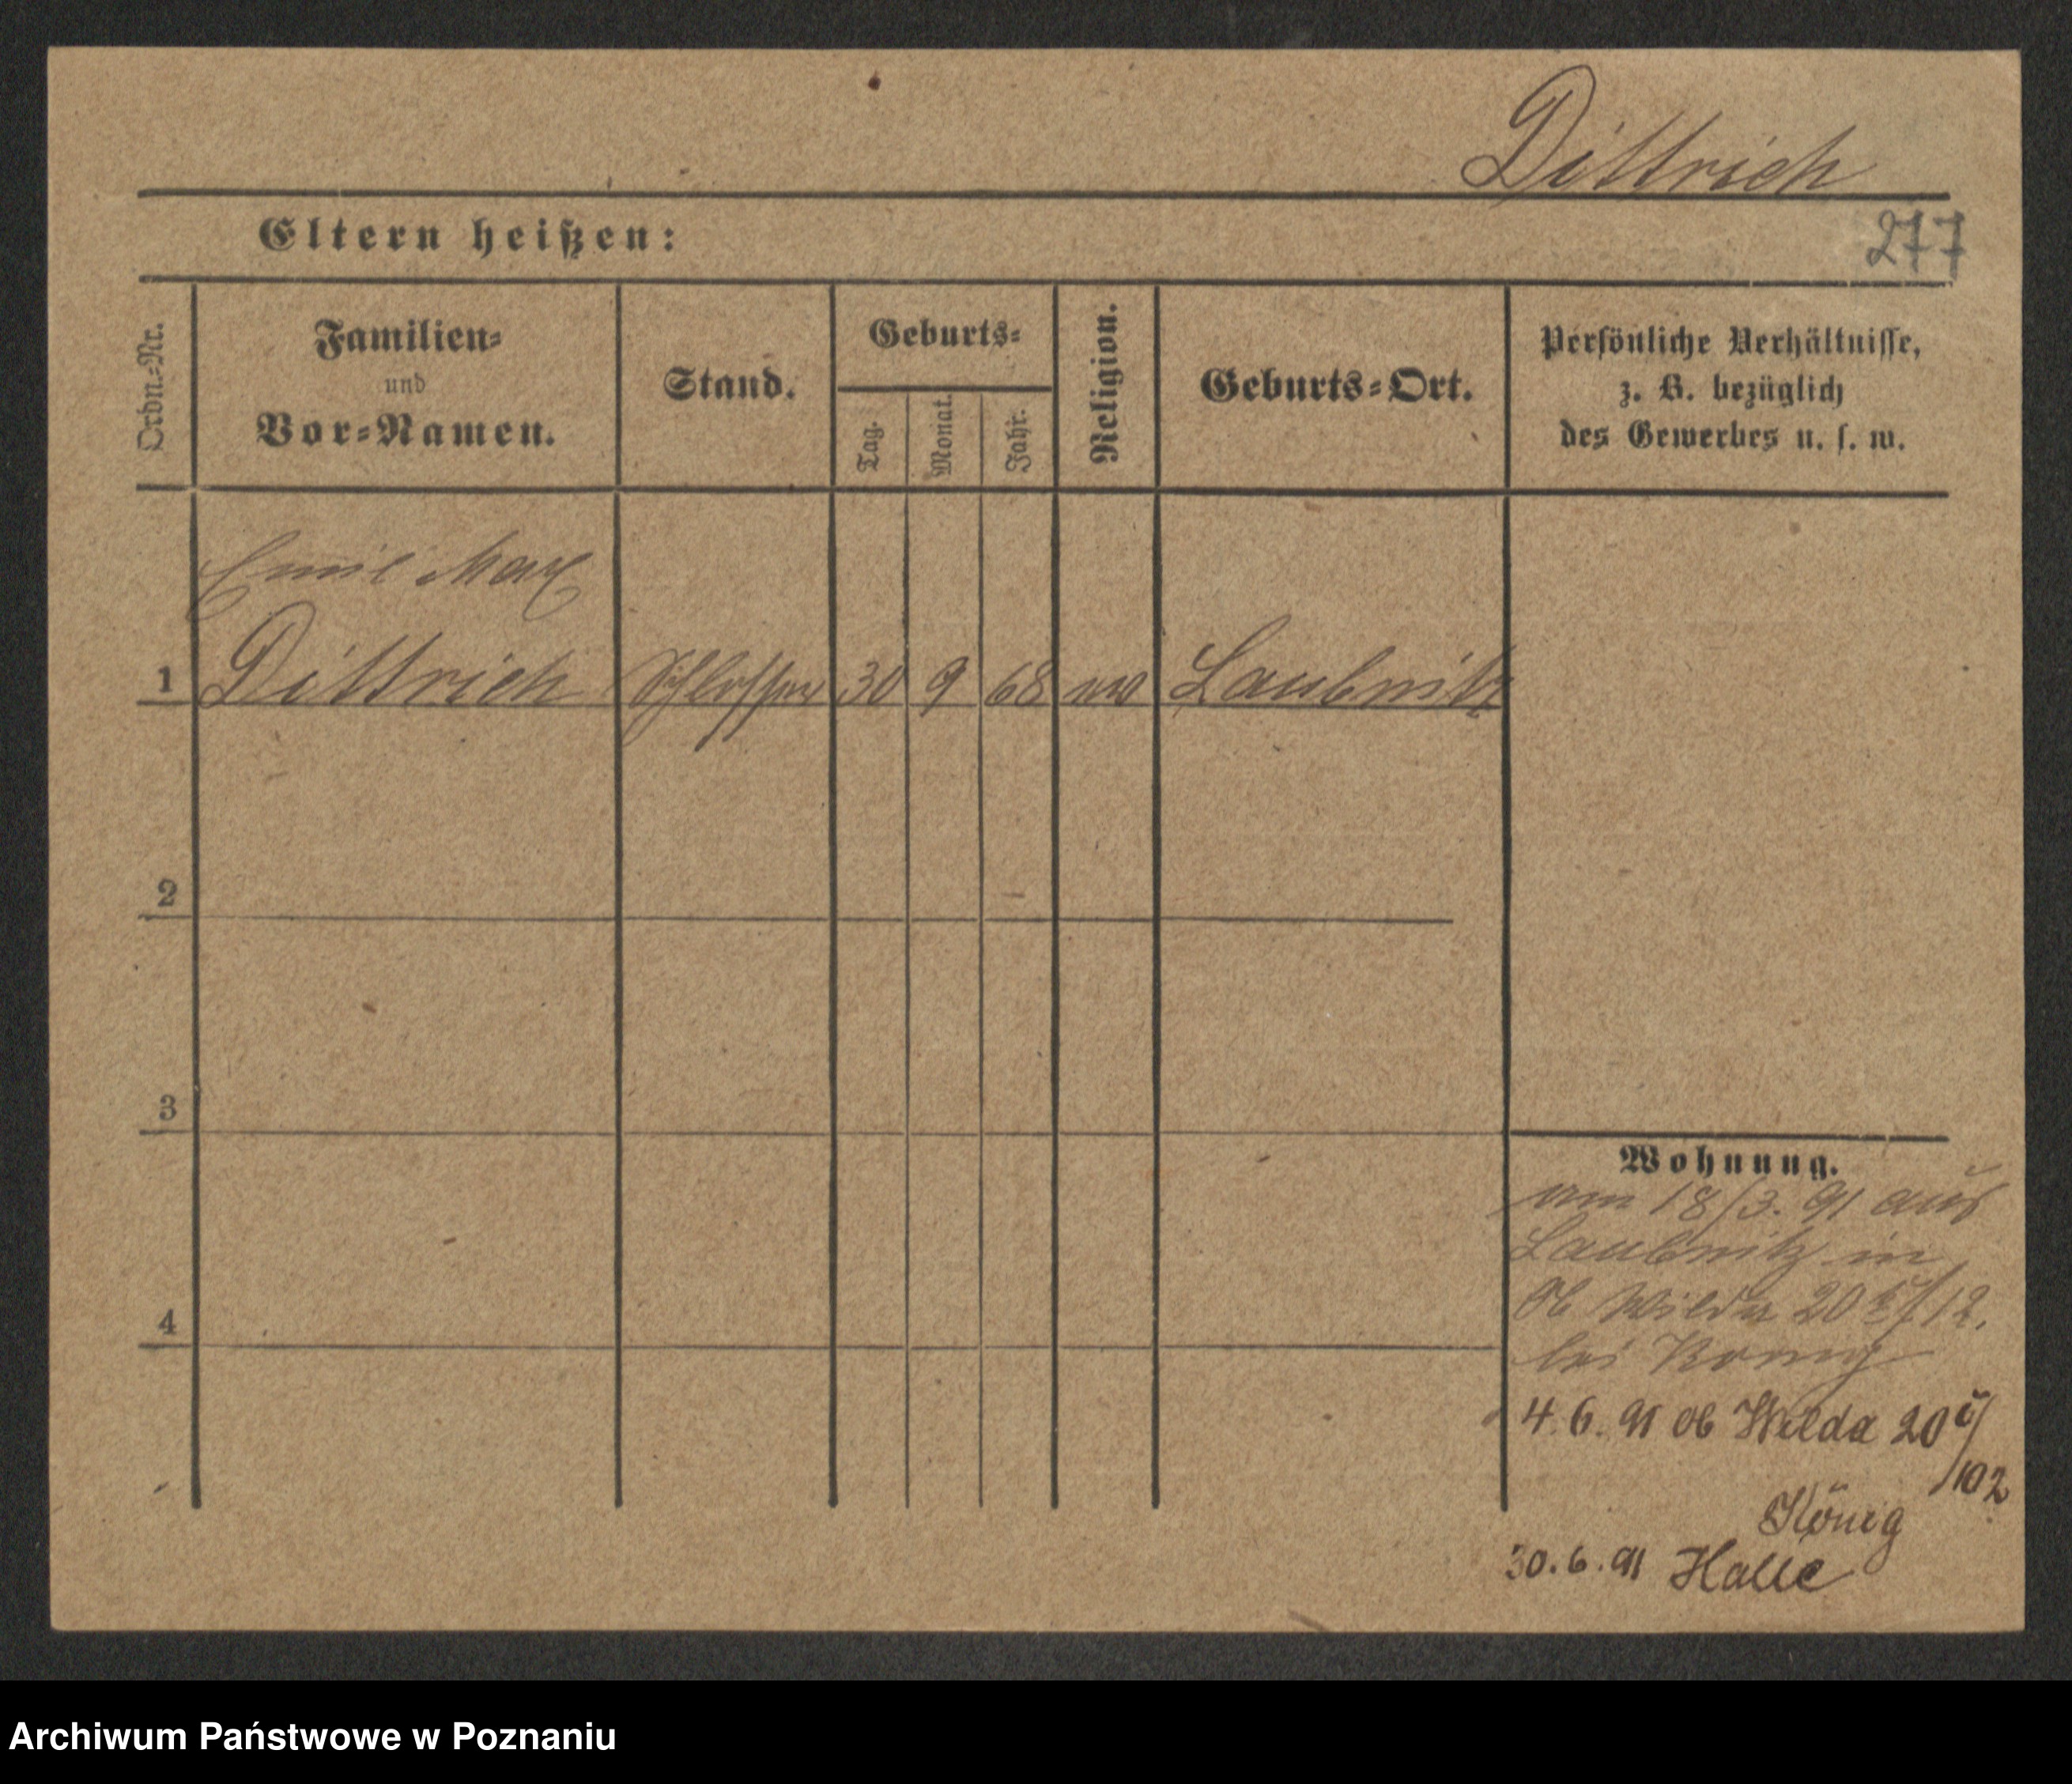 Dittrich
277
Eltern heißen:
Ordn.-Nr.
Familien-
und
Vor-Namen.
Stand.
Geburts-
Tag.
Monat.
Jahr.
Religion.
Geburts-Ort.
Persönliche Verhältnisse,
z. B. bezüglich
des Gewerbes u. s. w.
Emil Max
1 Dittrich Schlosser 30 9 68 ev Laubnitz
2
3
4
Wohnung.
am 18/3. 91 aus
Laubnitz in
Ob Wilda 20
bei König
4. 6. 91 Ob Wilda 20
/102
König
30. 6. 91 Halle
Archiwum Państwowe w Poznaniu